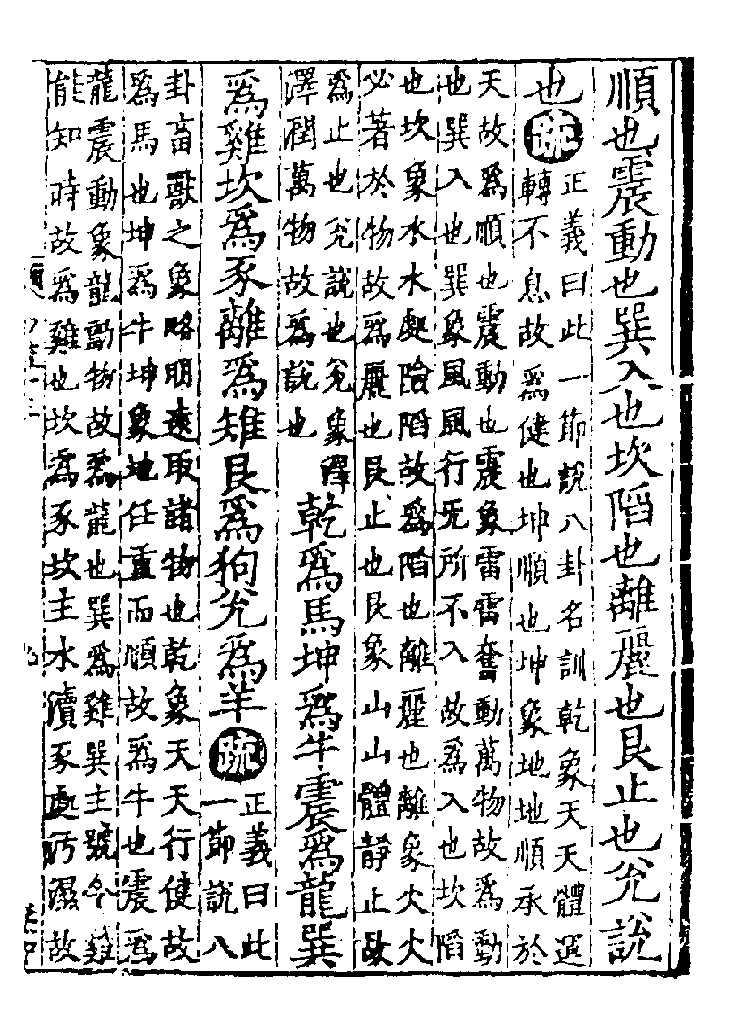 順也震動也巽入也坎陷也離麗也艮止也兊說
也疏正義曰此一節說八卦名訓乾象天天體運
轉不息故爲健也坤順也坤象地地順承於
天故爲順也震動也震象雷雷奮動萬物故爲動
也巽入也巽象風風行旡所不入故爲入也坎陷
也坎象水水處險陷故爲陷也離麗也離象火火
必著於物故爲麗也艮止也艮象山山體靜止故
爲止也兊說也兊象澤
澤潤萬物故爲說也
乾爲馬坤爲牛震爲龍巽
爲雞坎爲豕離爲雉艮爲狗兊爲羊疏正義曰此
一節說八
卦畜獸之象略明遠取諸物也乾象天天行健故
爲馬也坤爲牛坤象地任重而順故爲牛也震爲
龍震動象龍動物故爲龍也巽爲雞巽主號令雞
能知時故爲雞也坎爲豕坎主水瀆豕處污濕故